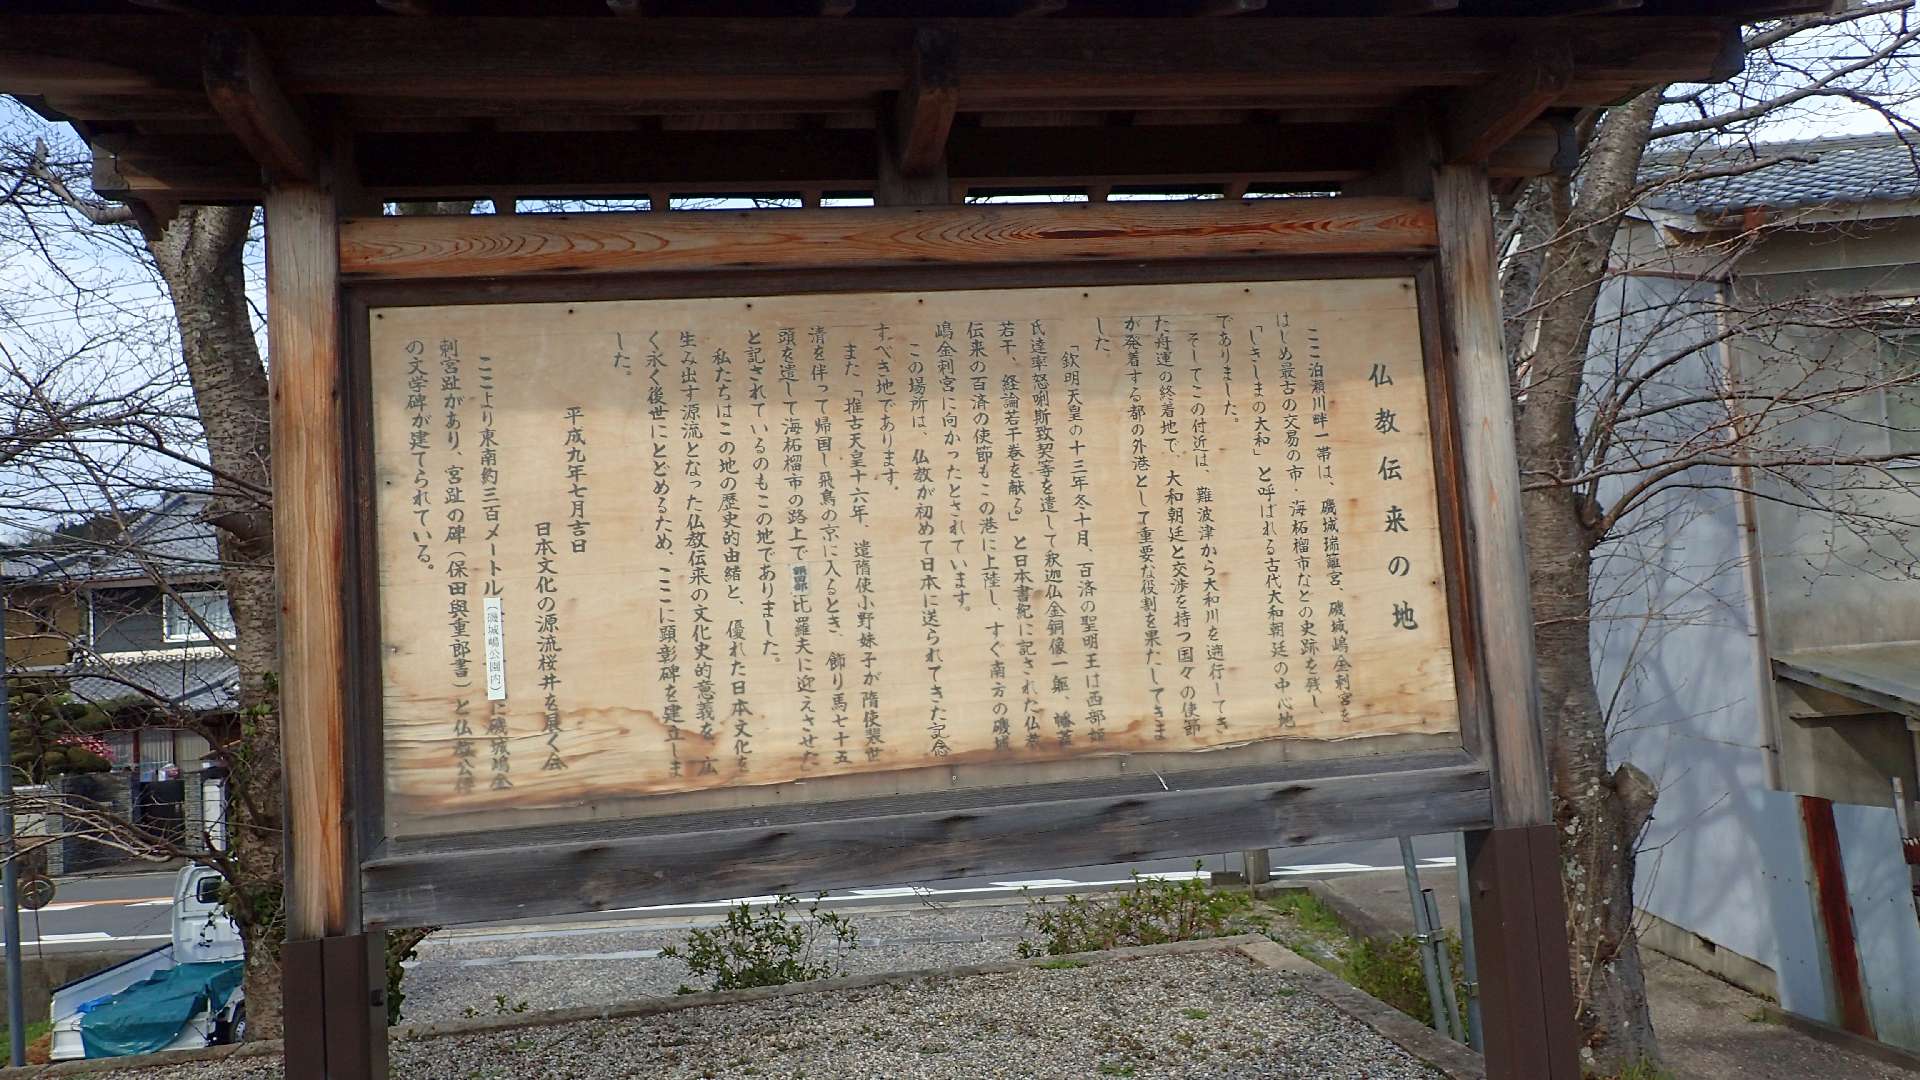 仏教伝来の地
ここ泊瀬川畔一帯は、磯城瑞籬宮、磯城嶋金刺宮を
はじめ最古の交易の市・海柘榴市などの史跡を残し、
「しきしまの大和」と呼ばれる古代大和朝廷の中心地
でありました。
そしてこの付近は、難波津から大和川を遡行してき
た舟運の終着地で、大和朝廷と交渉を持つ国々の使節
が発着する都の外港として重要な役割を果たしてきま
した。
「欽明天皇の十三年冬十月、百済の聖明王は西部姫
氏達率怒唎斯致契等を遣して釈迦仏金銅像一軀、幡蓋
若干、経論若干巻を献る」と日本書紀に記された仏教
伝来の百済の使節もこの港に上陸し、すぐ南方の磯城
嶋金刺宮に向かったとされています。
この場所は、仏教が初めて日本に送られてきた記念
すべき地であります。
また、「推古天皇十六年、遣隋使小野妹子が隋使裴世
清を伴って帰国し飛鳥の京に入るとき、飾り馬七十五
頭を遣して海柘榴市の路上で額田部比羅夫に迎えさせた」
と記されているのもこの地でありました。
私たちはこの地の歴史的由緒と、優れた日本文化を
生み出す源流となった仏教伝来の文化史的意義を、広
く永く後世にとどめるため、ここに顕彰碑を建立しま
した。
平成九年七月吉日
日本文化の源流桜井を展く会
ここより東南約三百メートル（磯城嶋公園内）に磯城嶋金
刺宮趾があり、宮趾の碑（保田與重郎書）と仏教公伝
の文学碑が建てられている。